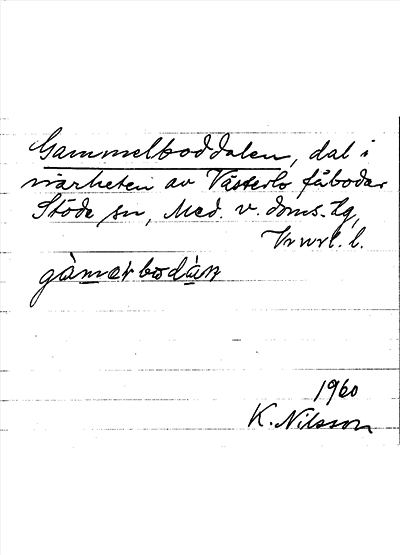 Gammelboddalen, dal i
närheten av Västerlo fåbodar
Stöde sn, Med. v. doms. tg,
Vnrl. l.
gàmælbodàɳ
1960
K. Nilsson